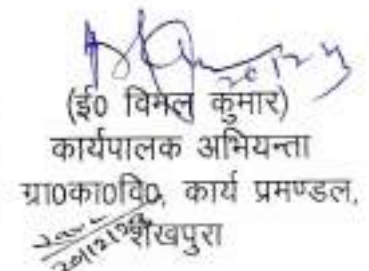 (ई0 विमल कुमार)
कार्यपालक अभियन्ता
ग्रा0का0वि0, कार्य प्रमण्डल,
शेखपुरा